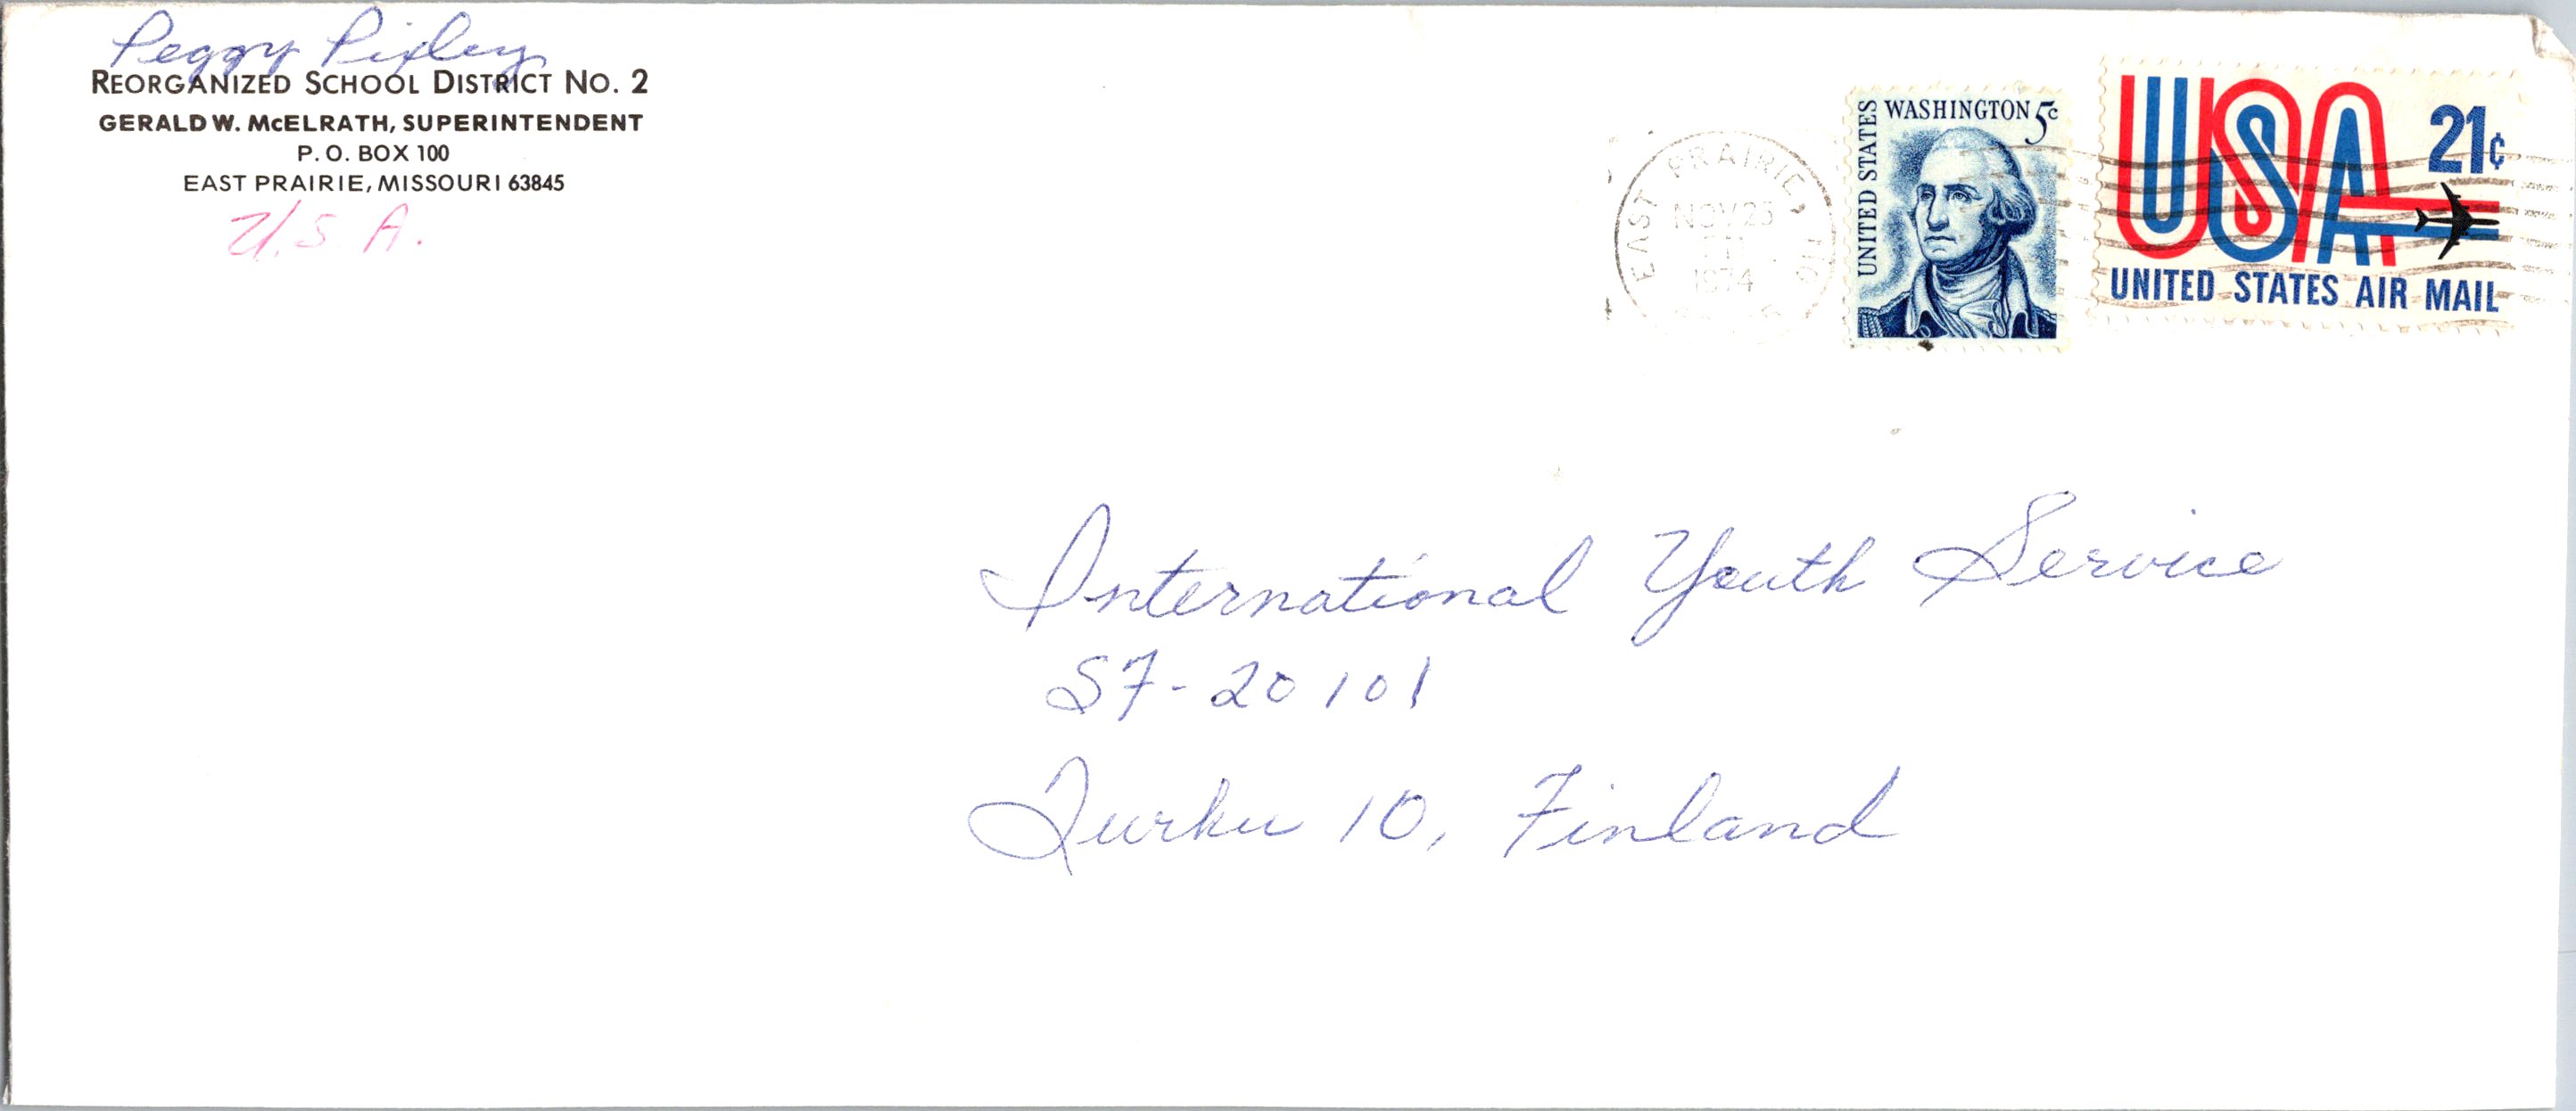 Peggy Pixley
REORGANIZED SCHOOL DISTRICT NO. 2
GERALD W. McELRATH, SUPERINTENDENT
P. O. BOX 100
EAST PRAIRIE, MISSOURI 63845
U.S.A.
EAST PRAIRIE,
NOV 25
1974
UNITED STATES
WASHINGTON 5c
USA
21¢
UNITED STATES AIR MAIL
International Youth Service
SF-20101
Turku 10, Finland